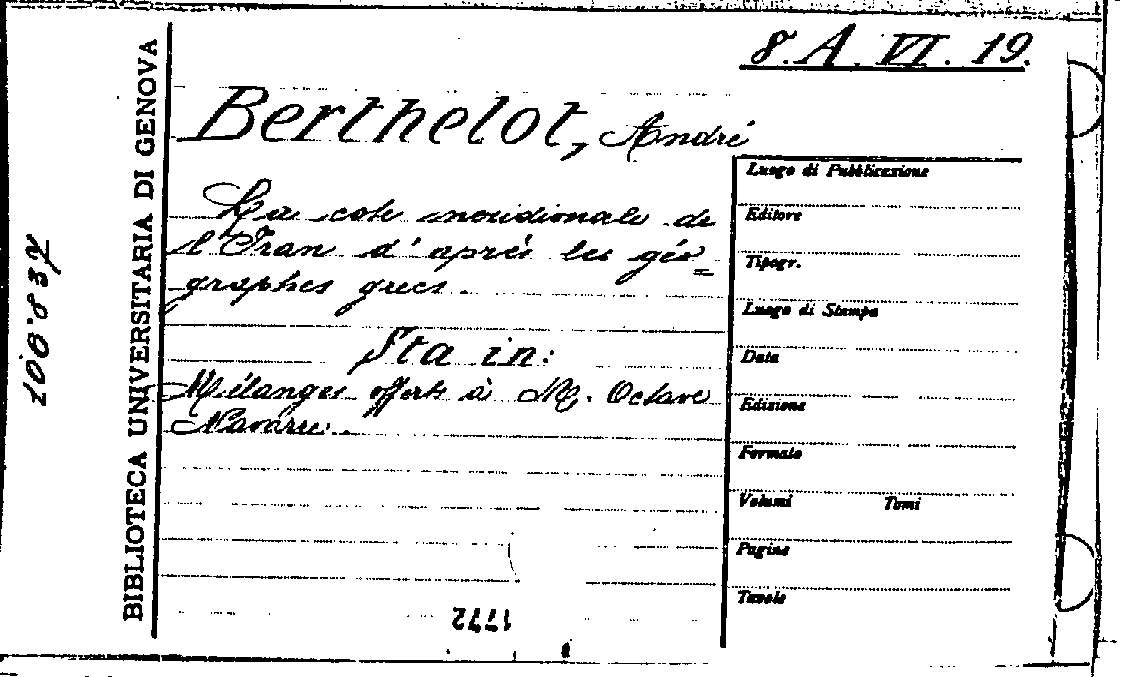 8. A. VI. 19.
BIBLIOTECA UNIVERSITARIA DI GENOVA
100.837
Berthelot, André
La cote meridionale de
l'Iran d'après les géo=
graphes grecs.
Sta in:
Mélanges offerts à M. Octave
Navarre.
1772
Luogo di Pubblicazione
Editore
Tipogr.
Luogo di Stampa
Data
Edizione
Formato
Volumi Tomi
Pagine
Tavole